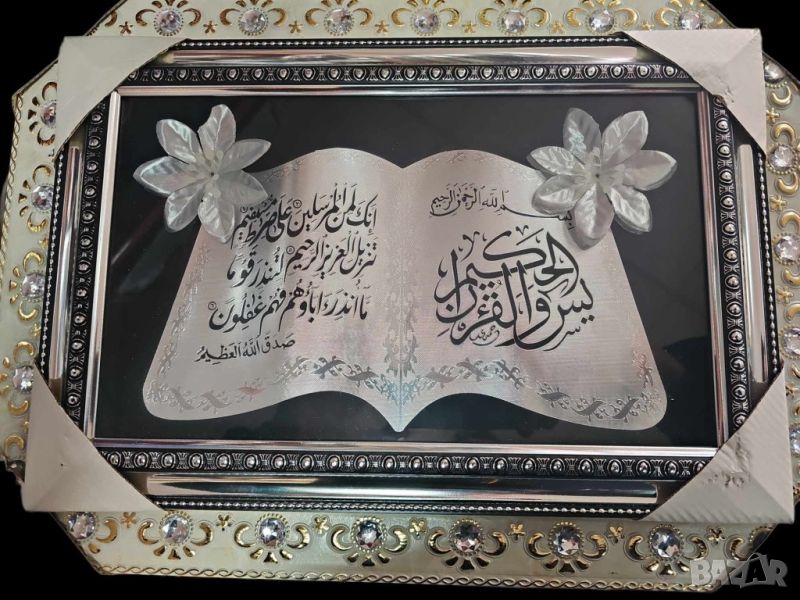 بسم الله الرحمن الرحيم
يس والقرءان الحكيم
إنك لمن المرسلين على صراط مستقيم
تنزيل العزيز الرحيم لتنذر قوما
ما انذر ءاباؤهم فهم غفلون
صدق الله العظيم
BAZAR